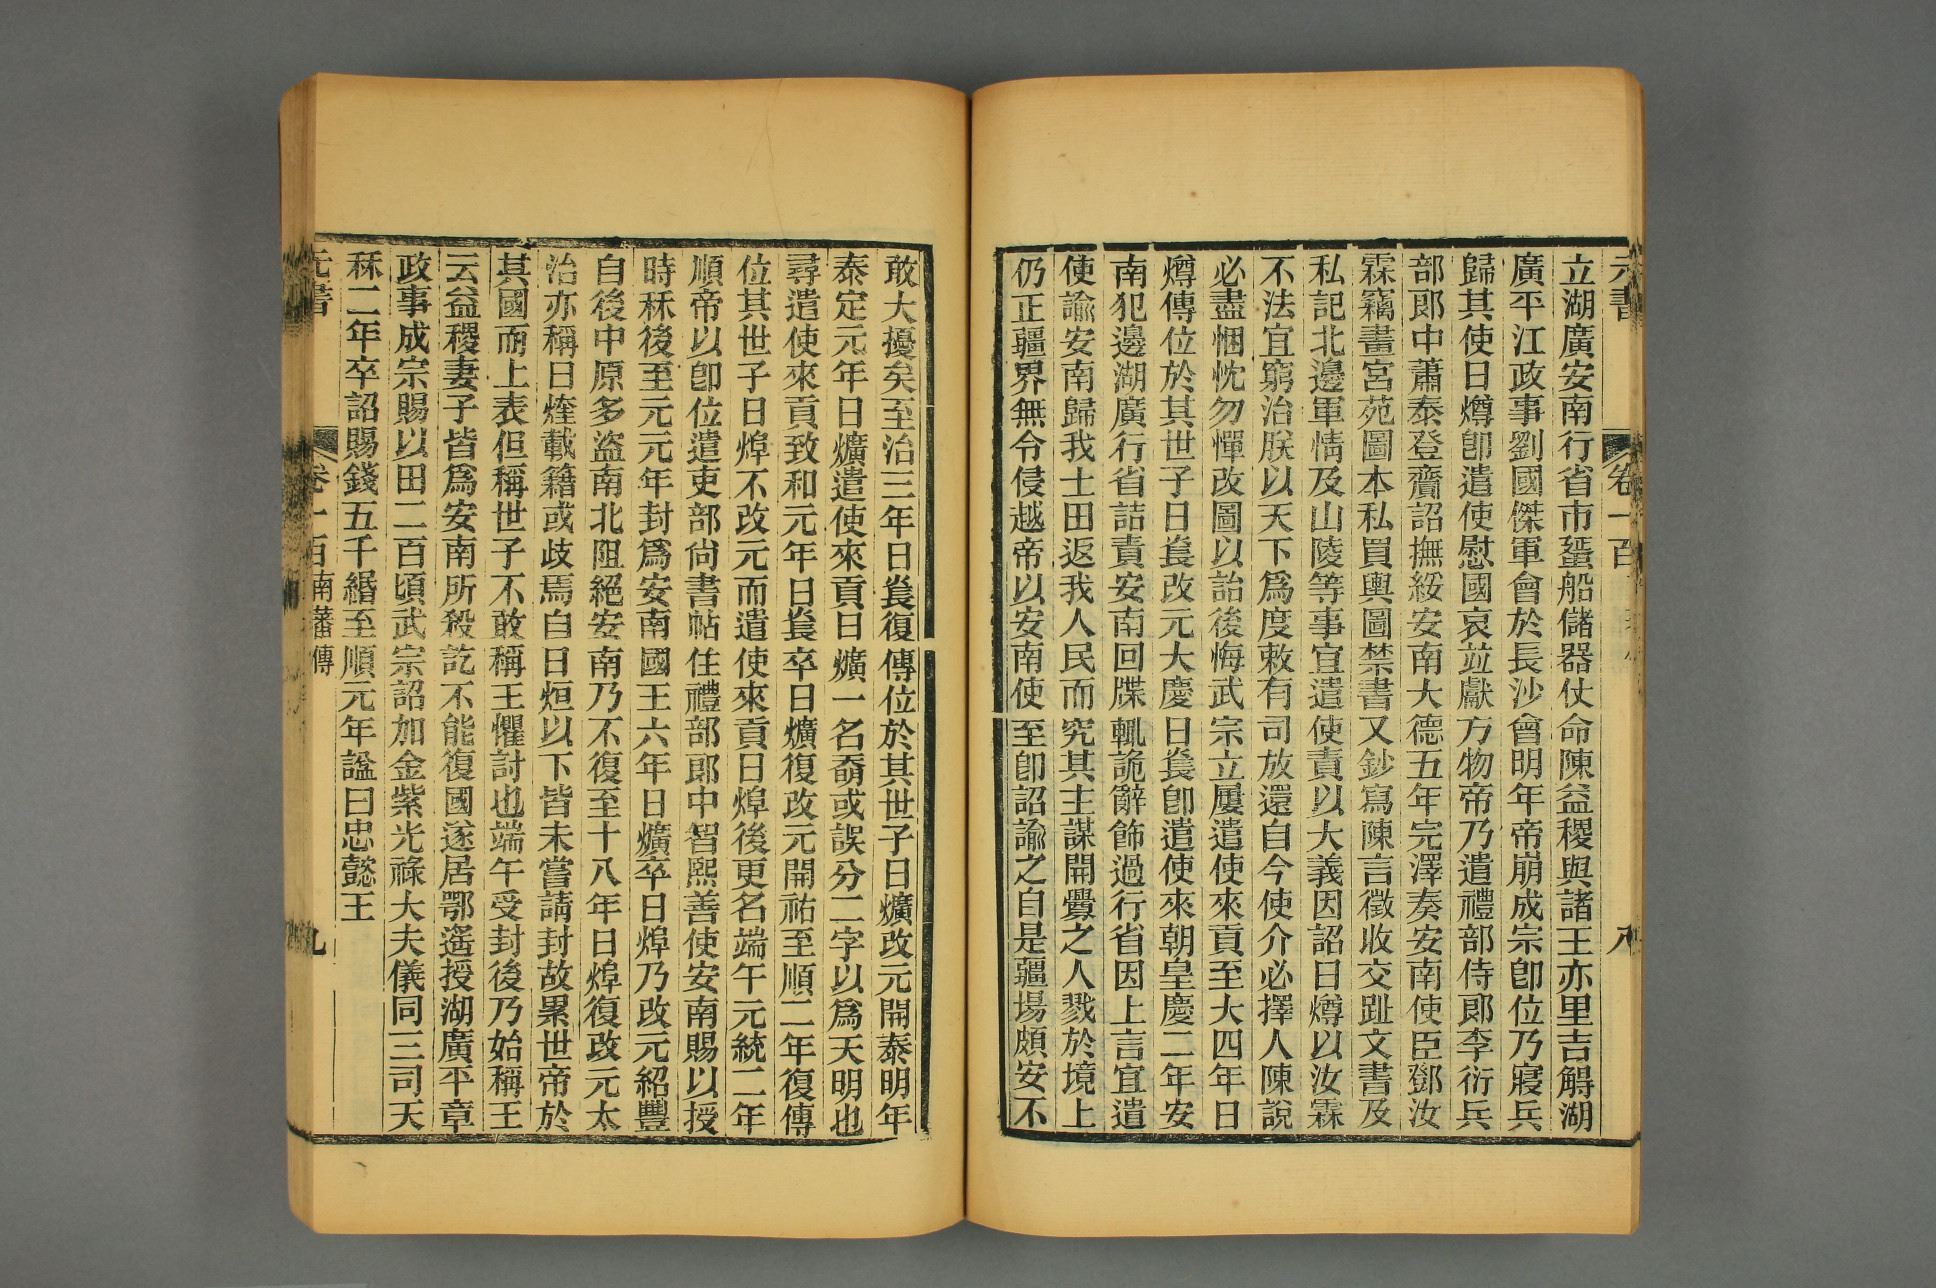 元書
卷一百
八
立湖廣安南行省市蜑船儲器仗命陳益稷與諸王亦里吉䚟湖
廣平江政事劉國傑軍會於長沙會明年帝崩成宗卽位乃寢兵
歸其使日燇卽遣使慰國哀並獻方物帝乃遣禮部侍郞李衍兵
部郞中蕭泰登齎詔撫綏安南大德五年完澤奏安南使臣鄧汝
霖竊畫宮苑圖本私買輿圖禁書又鈔寫陳言徵收交趾文書及
私記北邊軍情及山陵等事宜遣使責以大義因詔日燇以汝霖
不法宜窮治朕以天下爲度敕有司放還自今使介必擇人陳說
必盡悃忱勿憚改圖以詒後悔武宗立屢遣使來貢至大四年日
燇傳位於其世子日㷃改元大慶日㷃卽遣使來朝皇慶二年安
南犯邊湖廣行省詰責安南回牒輒詭辭飾過行省因上言宜遣
使諭安南歸我土田返我人民而究其主謀開釁之人戮於境上
仍正疆界無令侵越帝以安南使至卽詔諭之自是疆場頗安不
敢大擾矣至治三年日㷃復傳位於其世子日爌改元開泰明年
泰定元年日爌遣使來貢日爌一名奣或誤分二字以爲天明也
尋遣使來貢致和元年日㷃卒日爌復改元開祐至順二年復傳
位其世子日焠不改元而遣使來貢日焠後更名端午元統二年
順帝以卽位遣吏部尙書帖住禮部郞中智熙善使安南賜以授
時秝後至元元年封爲安南國王六年日爌卒日焠乃改元紹豐
自後中原多盜南北阻絕安南乃不復至十八年日焠復改元太
治亦稱日煃載籍或歧焉自日烜以下皆未嘗請封故累世帝於
其國而上表但稱世子不敢稱王懼討也端午受封後乃始稱王
云益稷妻子皆爲安南所殺訖不能復國遂居鄂遙授湖廣平章
政事成宗賜以田二百頃武宗詔加金紫光祿大夫儀同三司天
秝二年卒詔賜錢五千緡至順元年諡曰忠懿王
元書
卷一百南藩傳
九